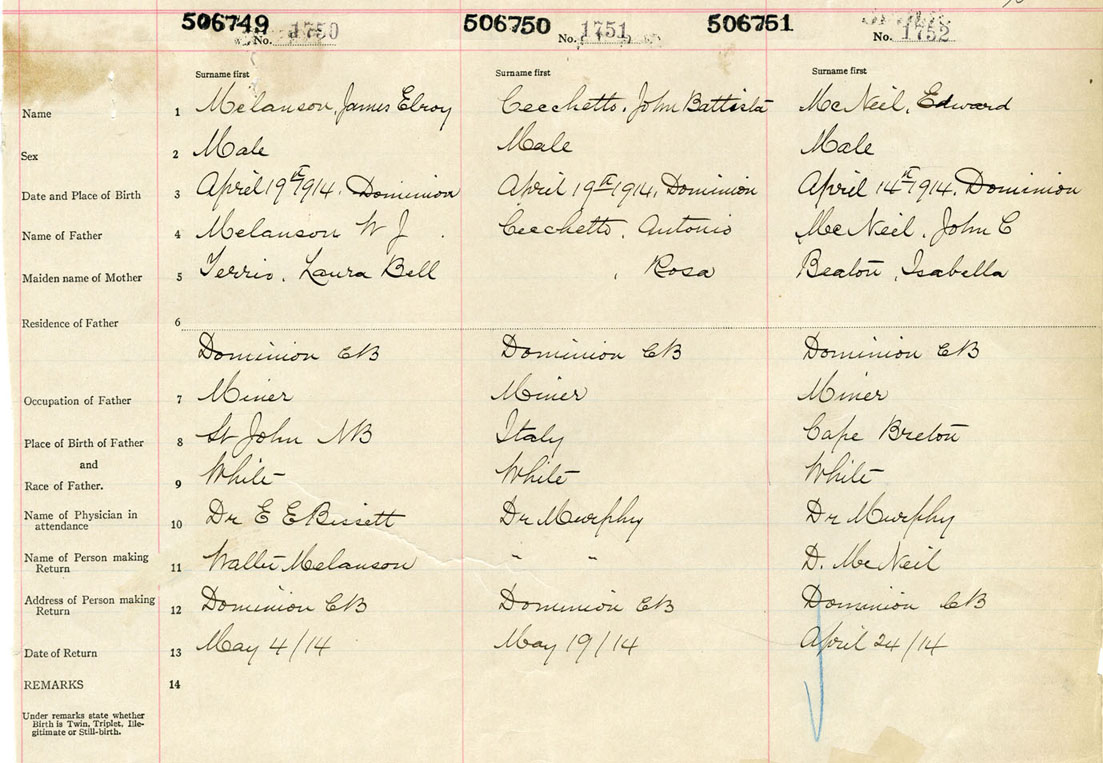 506749 506750 506751
No. 1750 No. 1751 No. 1752
Surname first Surname first Surname first
Name 1 Melanson, James Elroy Cecchetto, John Battista McNeil, Edward
Sex 2 Male Male Male
Date and Place of Birth 3 April 19th 1914, Dominion April 19th 1914, Dominion April 14th 1914, Dominion
Name of Father 4 Melanson W J. Cecchetto, Antonio McNeil, John C
Maiden name of Mother 5 Terrio, Laura Bell , Rosa Beaton, Isabella
Residence of Father 6
Dominion CB Dominion CB Dominion CB
Occupation of Father 7 Miner Miner Miner
Place of Birth of Father 8 St John NB Italy Cape Breton
and
Race of Father. 9 White White White
Name of Physician in
attendance 10 Dr E E Bissett Dr Murphy Dr Murphy
Name of Person making
Return 11 Walter Melanson " " D. McNeil
Address of Person making
Return 12 Dominion CB Dominion CB Dominion CB
Date of Return 13 May 4/14 May 19/14 April 24/14
REMARKS 14
Under remarks state whether
Birth is Twin, Triplet, Ille-
gitimate or Still-birth.